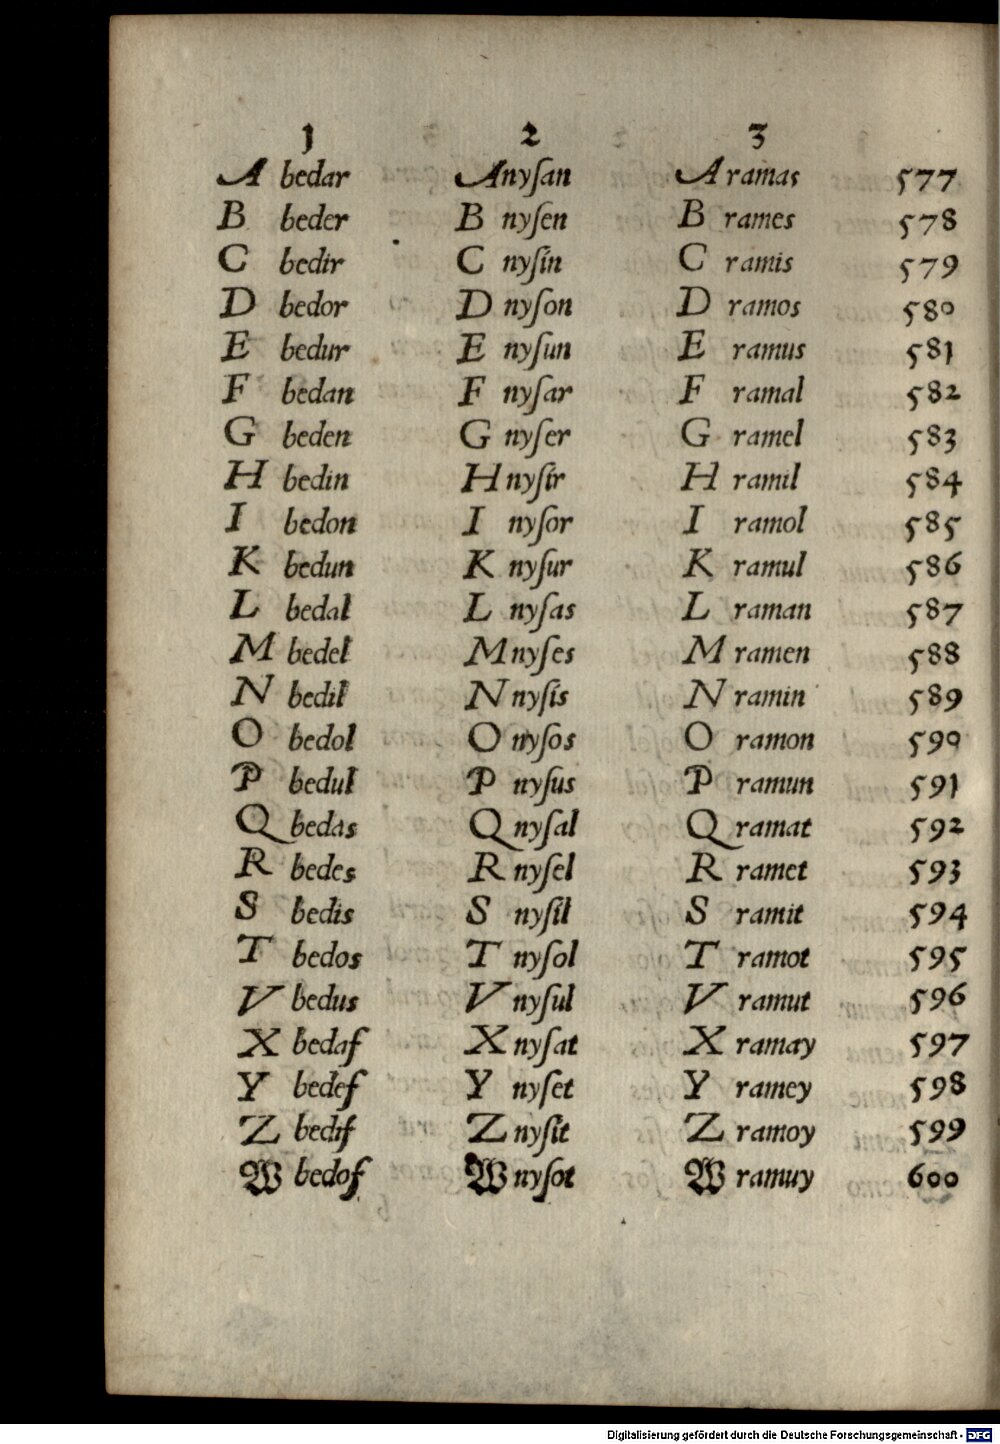 1 2 3
A bedar A nyſan A ramas 577
B beder B nyſen B rames 578
C bedir C nyſin C ramis 579
D bedor D nyſon D ramos 580
E bedur E nyſun E ramus 581
F bedan F nyſar F ramal 582
G beden G nyſer G ramel 583
H bedin H nyſir H ramil 584
I bedon I nyſor I ramol 585
K bedun K nyſur K ramul 586
L bedal L nyſas L raman 587
M bedel M nyſes M ramen 588
N bedil N nyſis N ramin 589
O bedol O nyſos O ramon 590
P bedul P nyſus P ramun 591
Q bedas Q nyſal Q ramat 592
R bedes R nyſel R ramet 593
S bedis S nyſil S ramit 594
T bedos T nyſol T ramot 595
V bedus V nyſul V ramut 596
X bedaf X nyſat X ramay 597
Y bedef Y nyſet Y ramey 598
Z bedif Z nyſit Z ramoy 599
W bedof W nyſot W ramuy 600
Digitalisierung gefördert durch die Deutsche Forschungsgemeinschaft - DFG